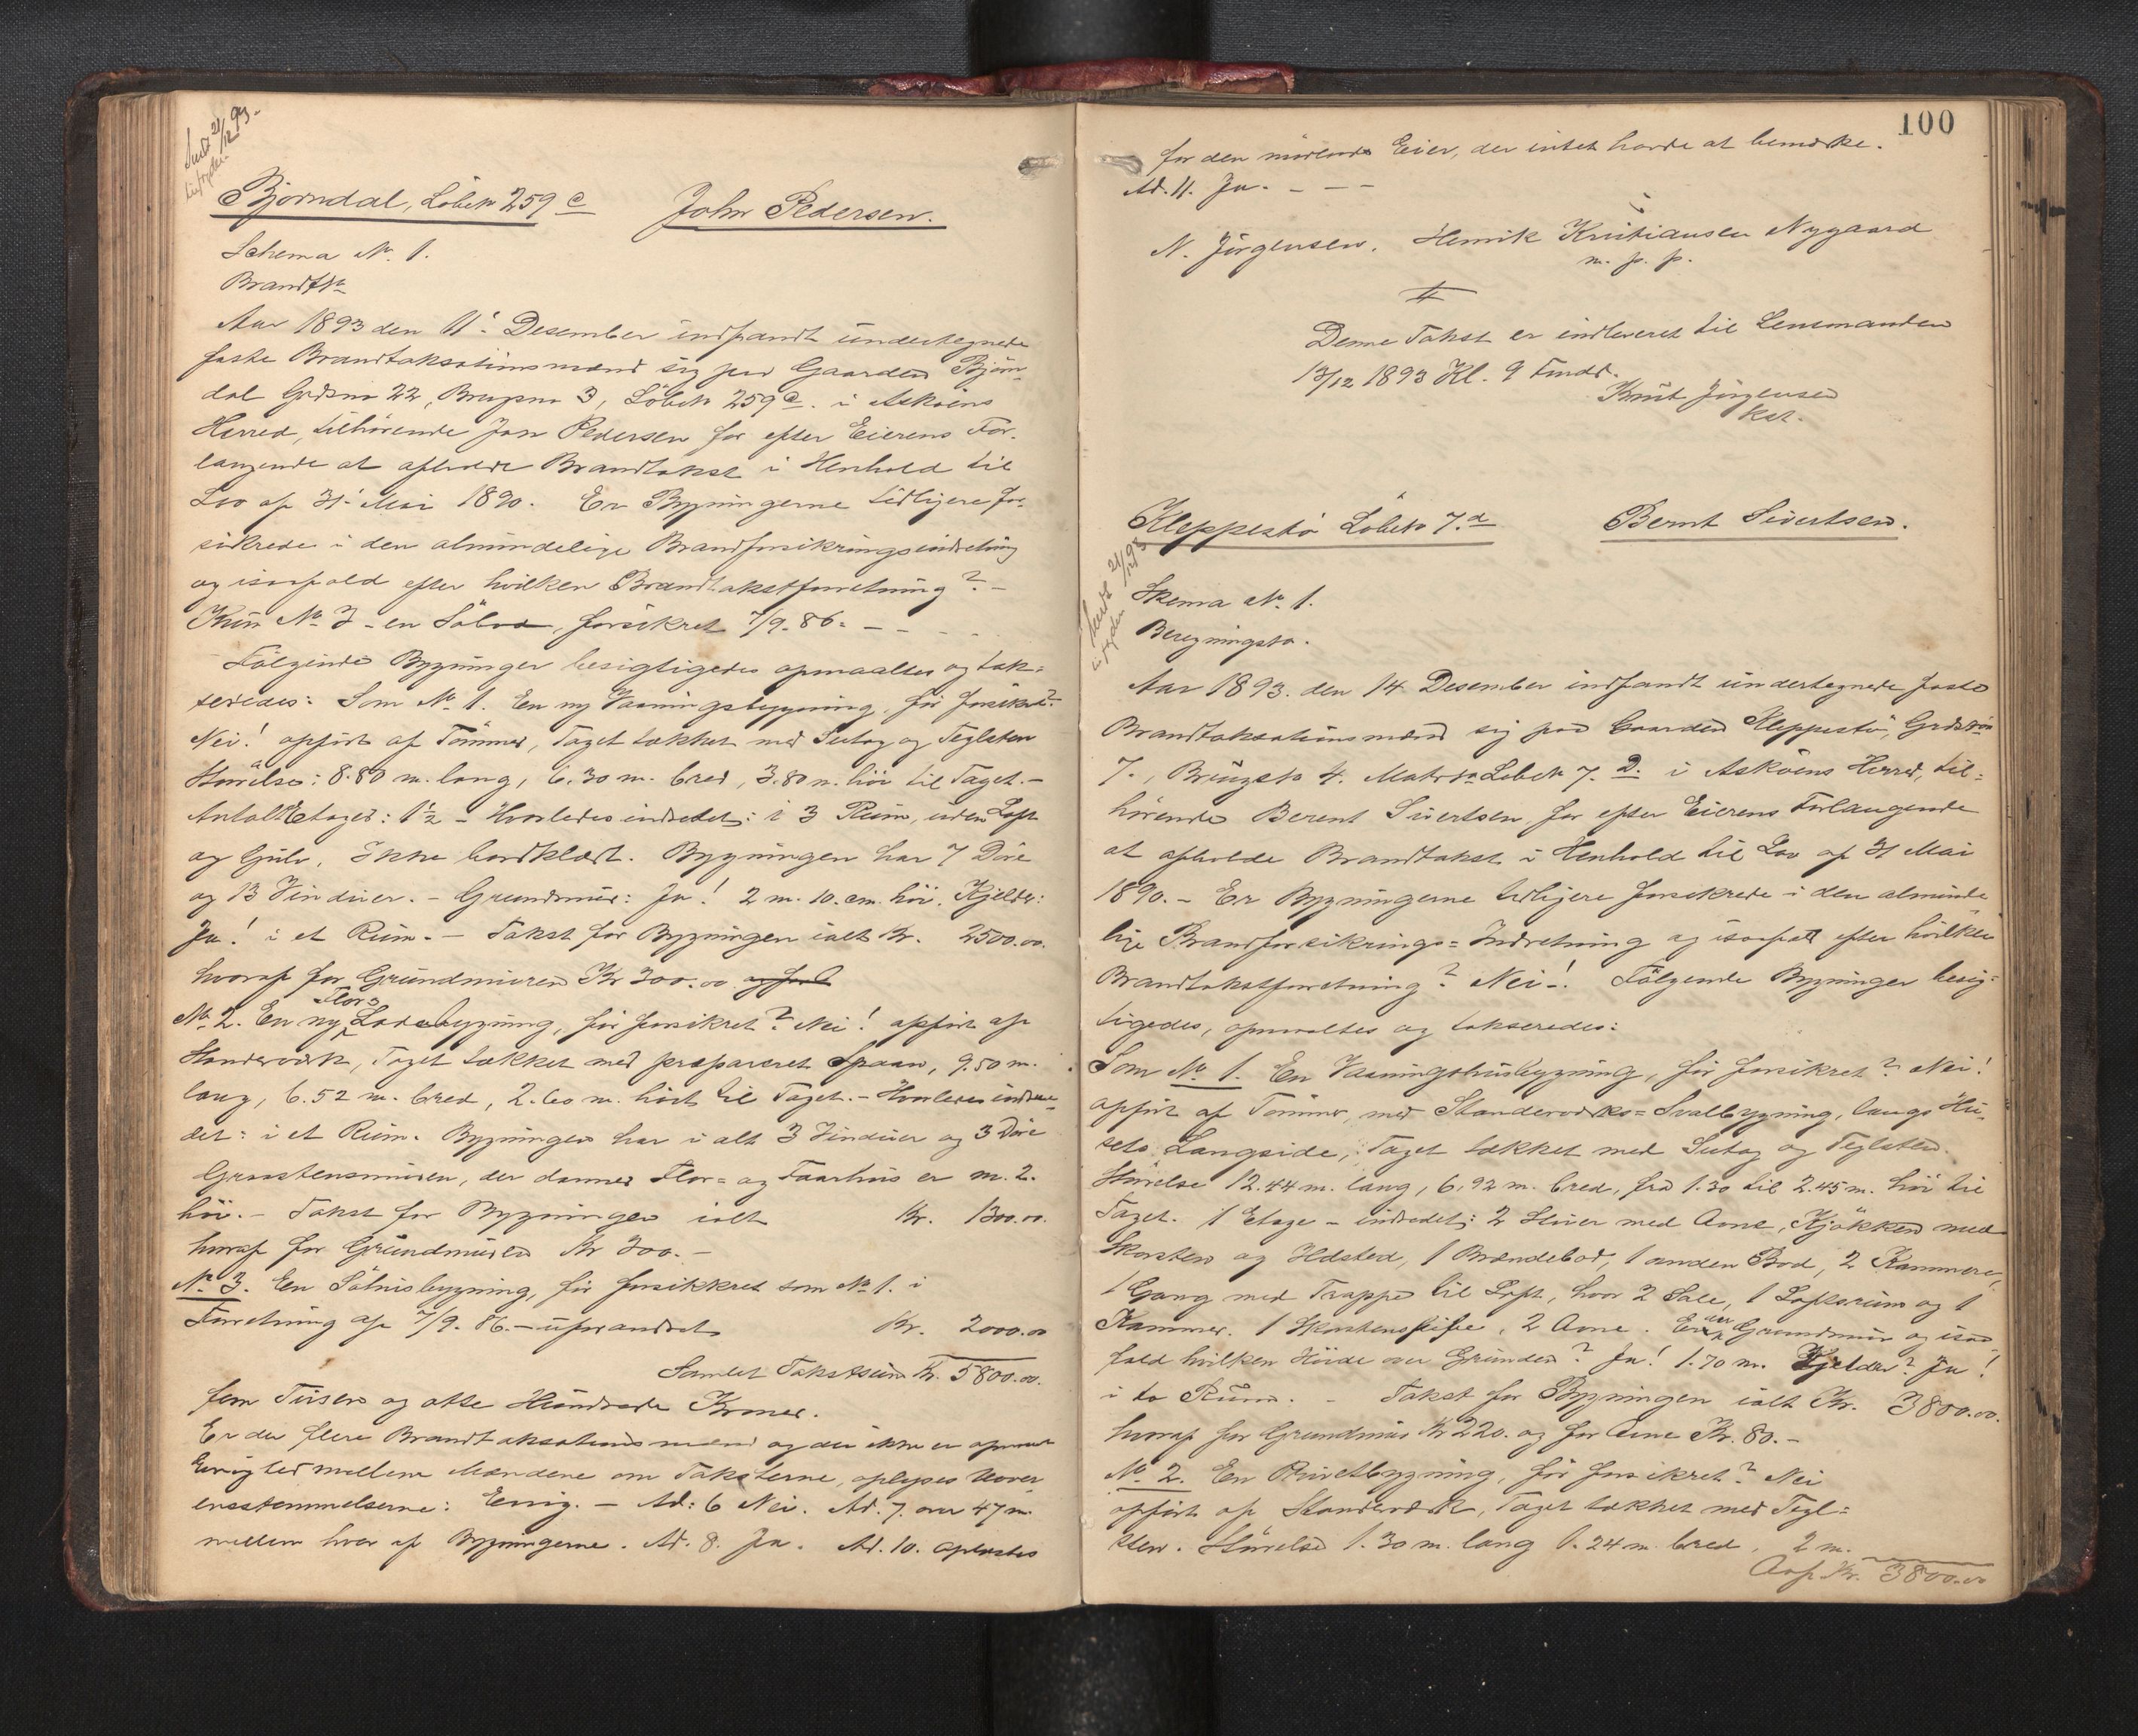 Sendt 21/12 93.-
Bjørndal, Löbeno 259 c John Pedersen.
Schema No. 1.
Brandtno
Aar 1893 den 11' Desember indfandt undertegnede
faste Brandtaksationsmænd sig paa Gaarden Bjørn-
dal Gardsno 22, Brugsno 3, Löbeno 259 c. i Askøens
Herred, tilhørende Jon Pedersen for efter Eierens For-
langende at afholde Brandtakst i Henhold til
Lov af 31' Mai 1890. Er Bygningerne tidligere for-
sikrede i den almindelige Brandforsikringsindretning
og isaafald efter hvilken Brandtakstforretning? -
Kun No 3 - en Söbod, forsikret 7/9-86. - - -
Følgende Bygninger besigtigedes opmaaltes og tak-
seredes: Som No 1. En ny Vaaningsbygning, før forsikret?
Nei! opført af Tømmer, Taget tækket med Sutag og Teglsten
Størrelse: 8.80 m. lang, 6.30 m. bred, 3.80 m. høi til Taget. -
Antal Etager: 1 1/2 - Hvorledes indredet: i 3 Rum, uden Loft
og Gulv, ikke bordklædt. Bygningen har 7 Døre
og 13 Vinduer. - Grundmur: Ja! 2 m. 10. cm. høi. Kjelder:
Ja! i et Rum. - Takst for Bygningen ialt Kr. 2500.00.
hvoraf for Grundmuren Kr 300.00 og for
No 2. En ny Flor- Ladebygning, før forsikret? Nei! opført af
Standerværk, Taget tækket med præpareret Spaan, 9.50 m.
lang, 6.52 m. bred, 2.60 m. høit til Taget. - Hvorledes indre-
det: i et Rum. Bygningen har i alt 3 Vinduer og 3 Døre
Graastensmuren, der danner Flor- og Faarhus er m. 2.
høi. - Takst for Bygningen ialt Kr. 1300.00.
hvoraf for Grundmuren Kr 300. -
No 3. En Söhusbygning, før forsikkret som No 1. i
Forretning af 7/9. 86. - uforandret Kr. 2000.00
Samlet Takstsum Kr. 5800.00.
fem Tusen og otte Hundrede Kroner.
Er der flere Brandtaksationsmænd og der ikke er opnaaet
Enighed mellem Mændene om Taksterne, oplyses Uover-
ensstemmelserne: Enig. - Ad: 6 Nei. Ad. 7. over 47 m.
mellem hver af Bygningerne. Ad. 8. Ja. Ad. 10. Oplæstes
100
for den mødende Eier, der intet havde at bemærke.
Ad. 11. Ja. - - -
N. Jørgensen. Henrik Kristiansen Nygaard
m. p. p.
Denne Takst er indleveret til Lensmanden
13/12 1893 Kl. 9 Fmdd.
Knut Jørgensen
kst.
Kleppestø Löbeno 7. d Bernt Sivertsen.
Sendt 21/12 93
Skema No. 1.
Bergningsno.
Aar 1893. den 14 Desember indfandt undertegnede faste
Brandtaksationsmænd sig paa Gaarden Kleppestø, Grdsno
7., Brugsno 4. Matr. No Löbeno 7. D. i Askøens Herred, til-
hørende Berent Sivertsen, for efter Eierens Forlangende
at afholde Brandtakst i Henhold til Lov af 31 Mai
1890. - Er Bygningerne tidligere forsikrede i den alminde
lige Brandforsikrings-Indretning og isaafald efter hvilken
Brandtakstforretning? Nei-! Følgende Bygninger besig-
tigedes, opmaaltes og takseredes:
Som No 1. En Vaaningshusbygning, før forsikret? Nei!
opført af Tømmer, med Standerværks-Svalbygning, langs Hu-
sets Langside, Taget tækket med Sutag og Teglsten.
Størrelse 12.44 m. lang, 6.92 m. bred, fra 1.30 til 2.45 m. høi til
Taget. 1 Etage - indredet: 2 Stuer med Ovne, Kjøkken med
Skorsten og Ildsted, 1 Brændebod, 1 anden Bod, 2 Kammere,
1 Gang med Trappe til Loft, hvor 2 Sale, 1 Loftsrum og 1
Kammer. 1 Skorstenspibe, 2 Ovne. Er der Grundmur og isaa
fald hvilken Höide over Grunden? Ja! 1.70 m. Kjelder? Ja!
i to Rum. - Takst for Bygningen ialt Kr. 3800.00.
hvoraf for Grundmur Kr 220. og for Ovne Kr. 80. -
No 2. En Privetbygning, før forsikret? Nei
opført af Standerværk, Taget tækket med Tegl-
sten. Størrelse 1.30 m. lang 1.24 m. bred, 2 m.
Ovf. Kr. 3800.00